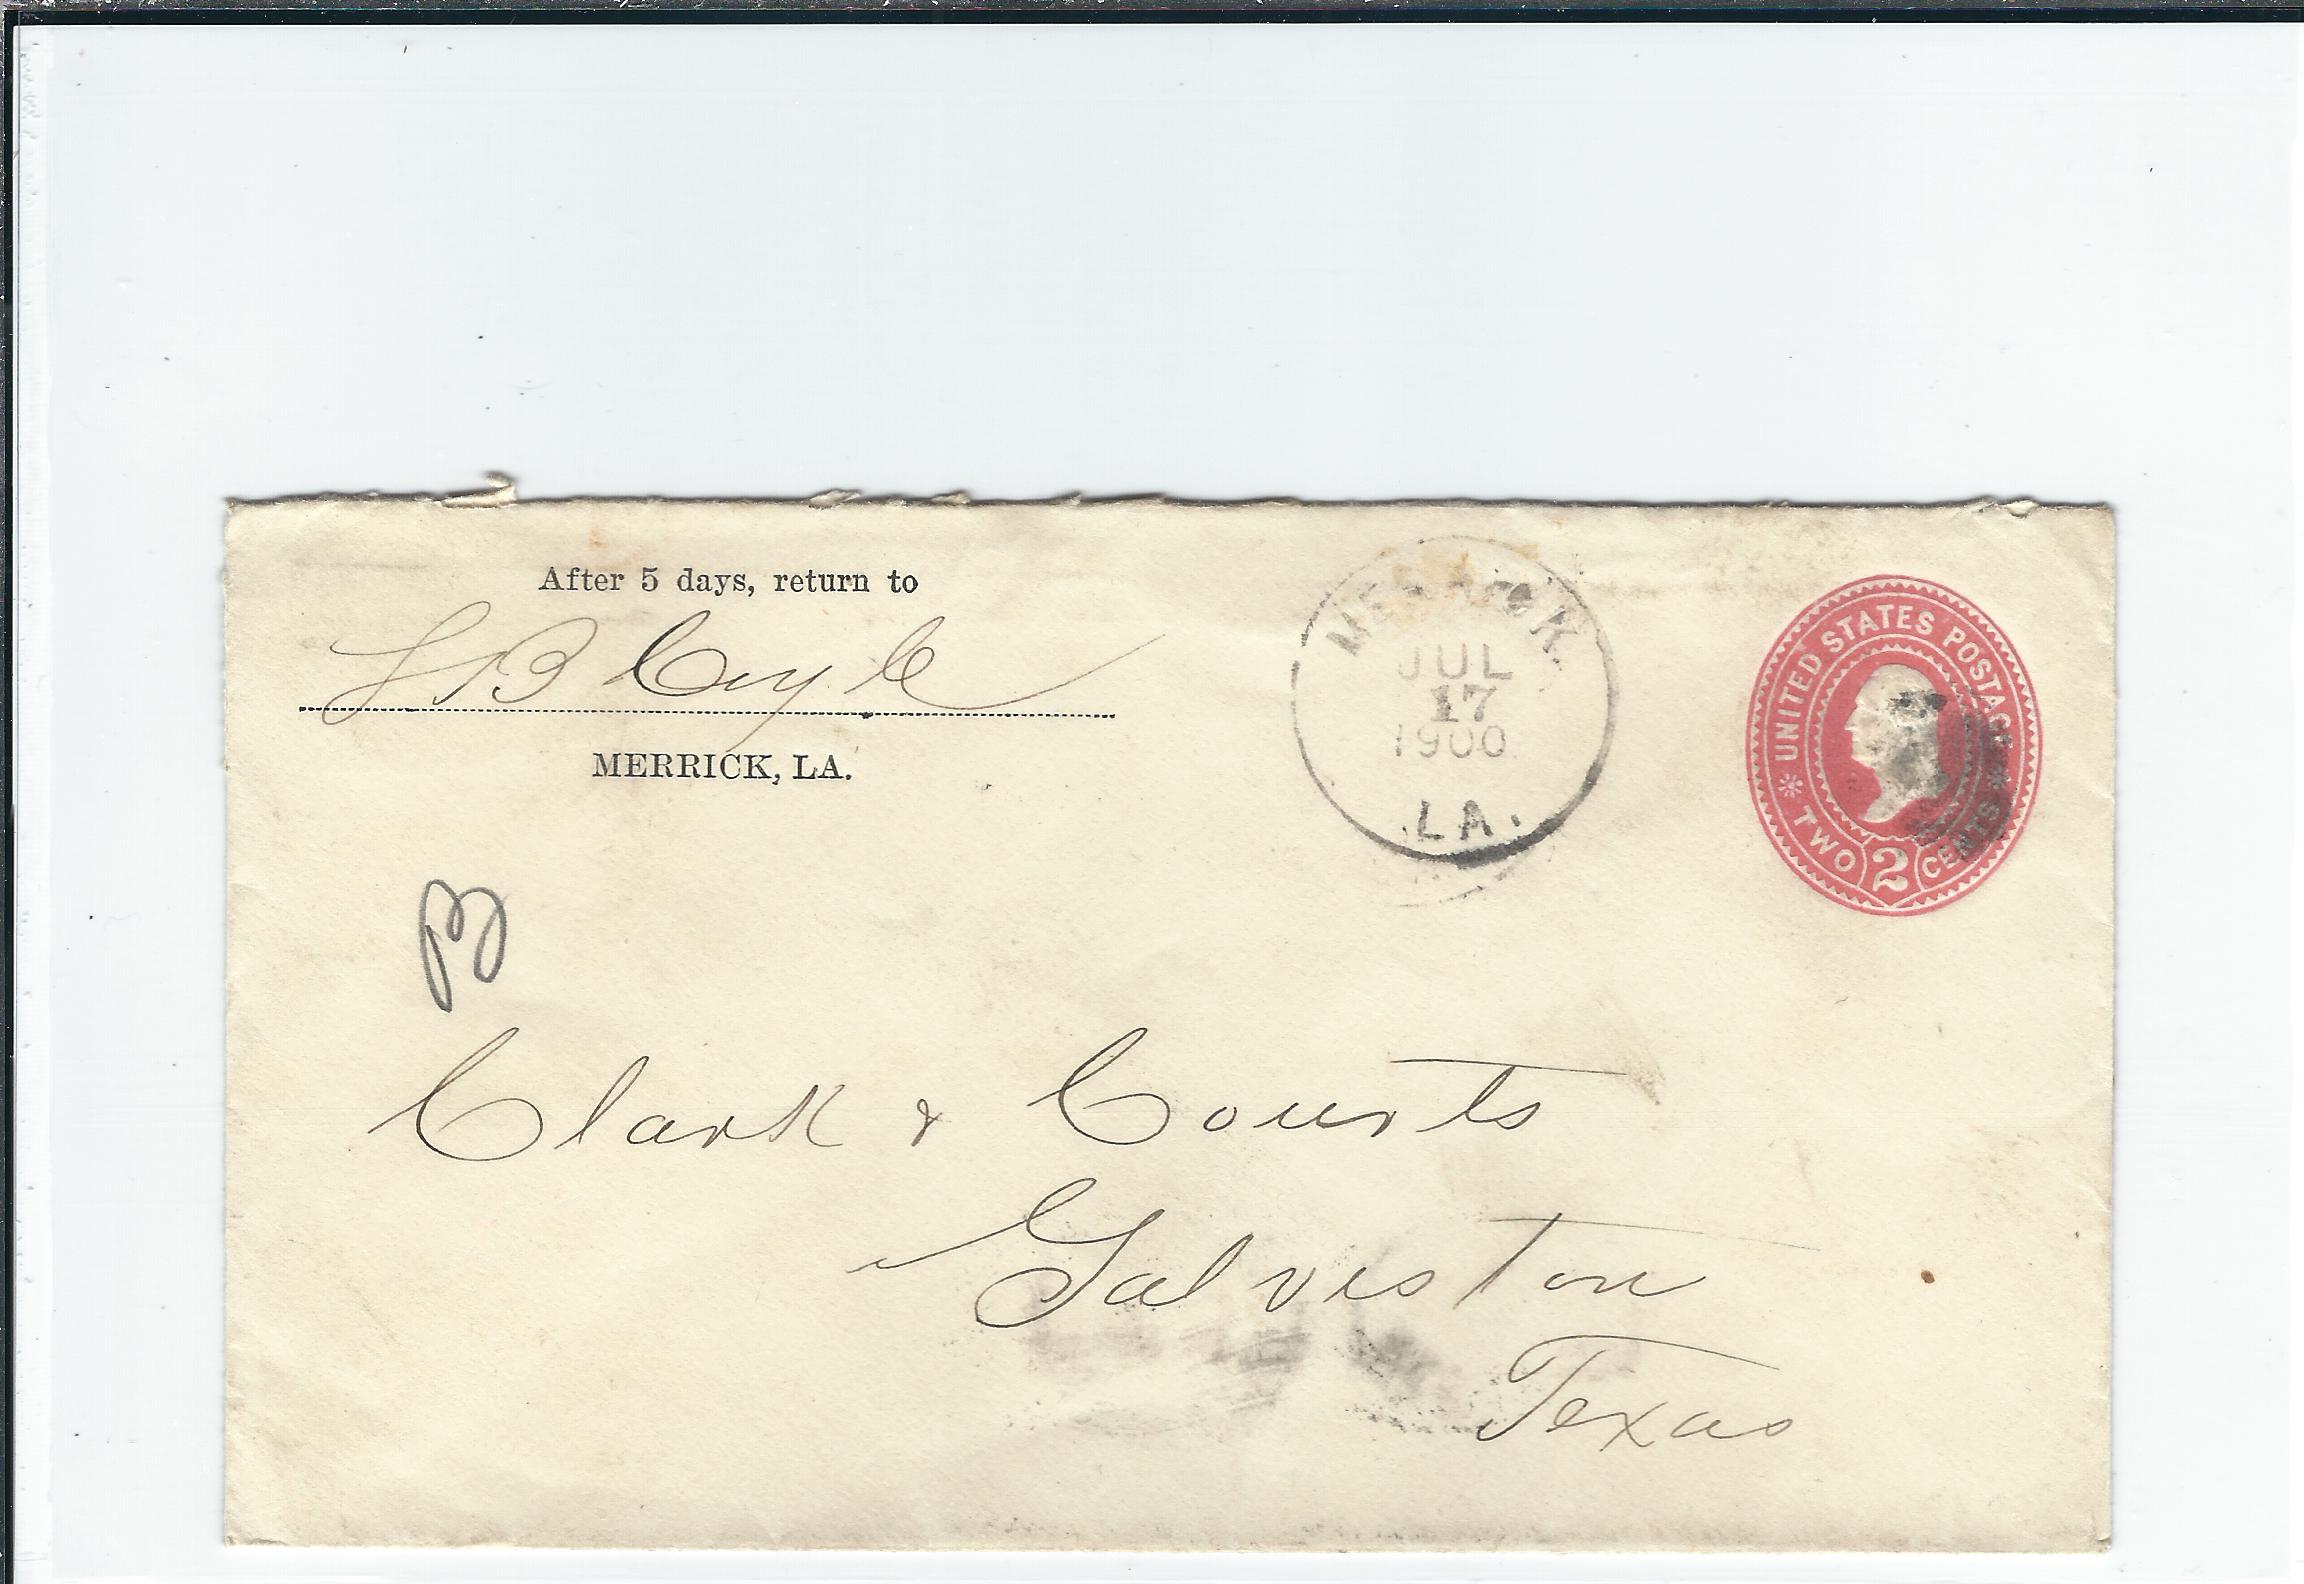 After 5 days, return to
S B Coyle
MERRICK, LA.
MERRICK
JUL
17
1900
LA.
UNITED STATES POSTAGE
TWO 2 CENTS
B
Clark & Courts
Galveston
Texas